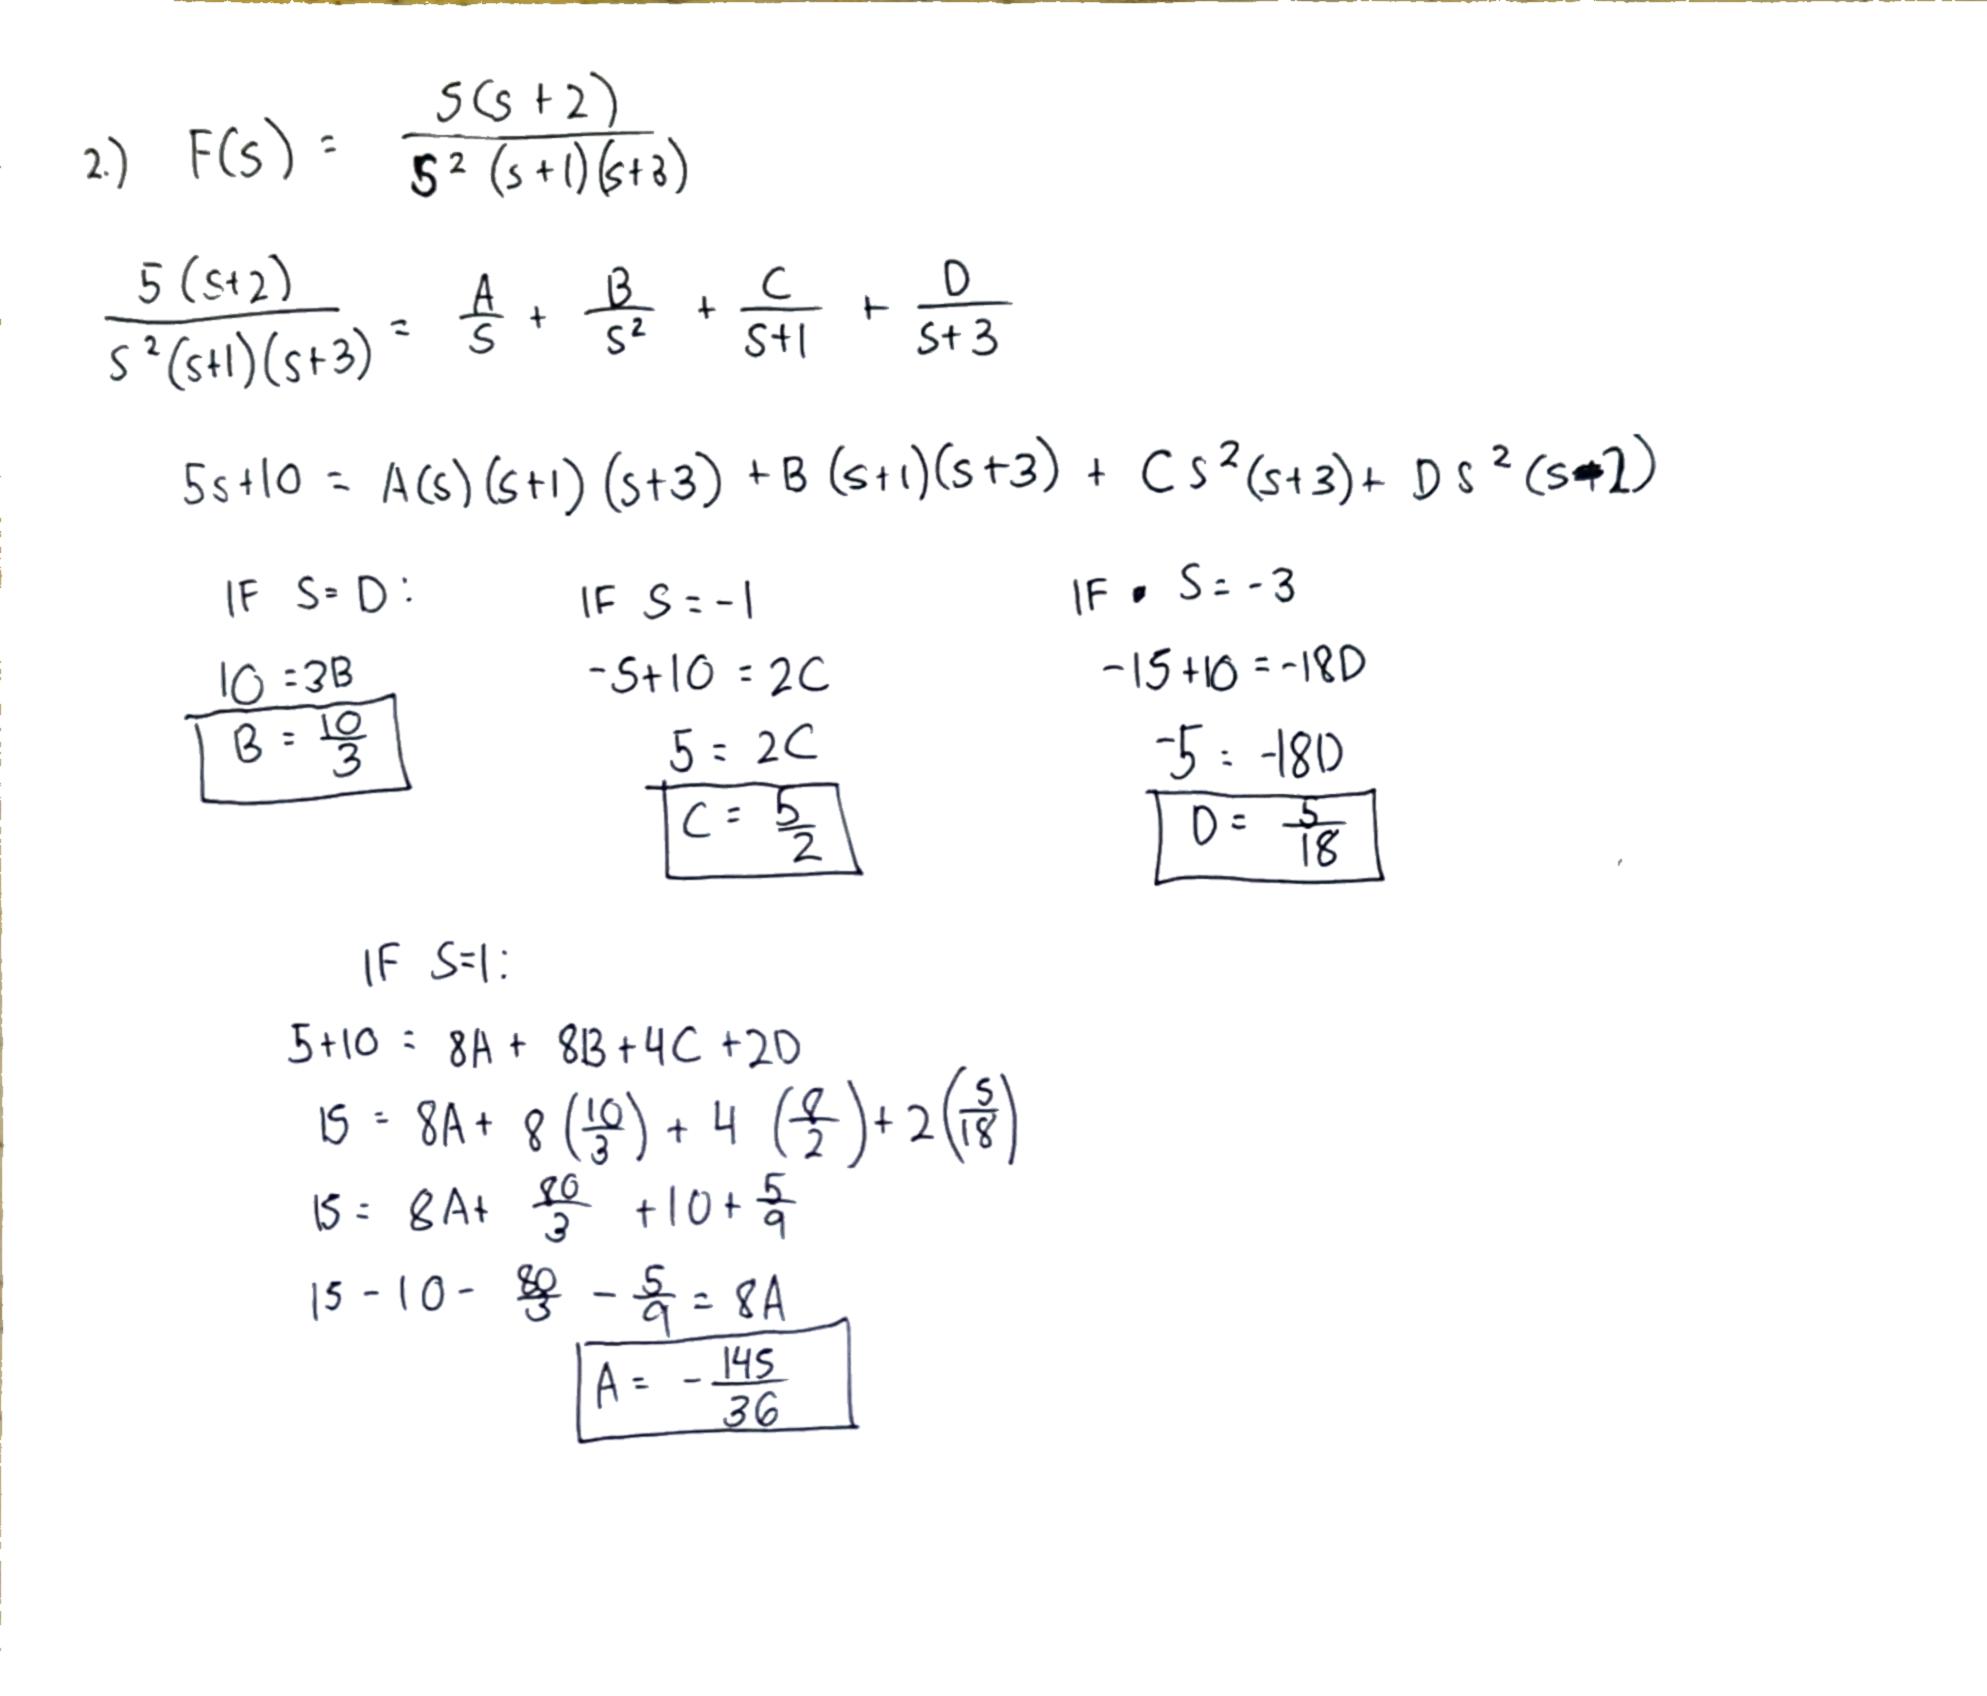 2.) F(s) = 5(s+2) / s² (s+1)(s+3)
5(s+2) / s²(s+1)(s+3) = A/s + B/s² + C/s+1 + D/s+3
5s+10 = A(s)(s+1)(s+3) + B(s+1)(s+3) + Cs²(s+3) + Ds²(s+1)
IF S=0:
10 = 3B
B = 10/3
IF S=-1
-5+10 = 2C
5 = 2C
C = 5/2
IF S=-3
-15+10 = -18D
-5 = -18D
D = 5/18
IF S=1:
5+10 = 8A + 8B + 4C + 2D
15 = 8A + 8(10/3) + 4(5/2) + 2(5/18)
15 = 8A + 80/3 + 10 + 5/9
15 - 10 - 80/3 - 5/9 = 8A
A = -145/36